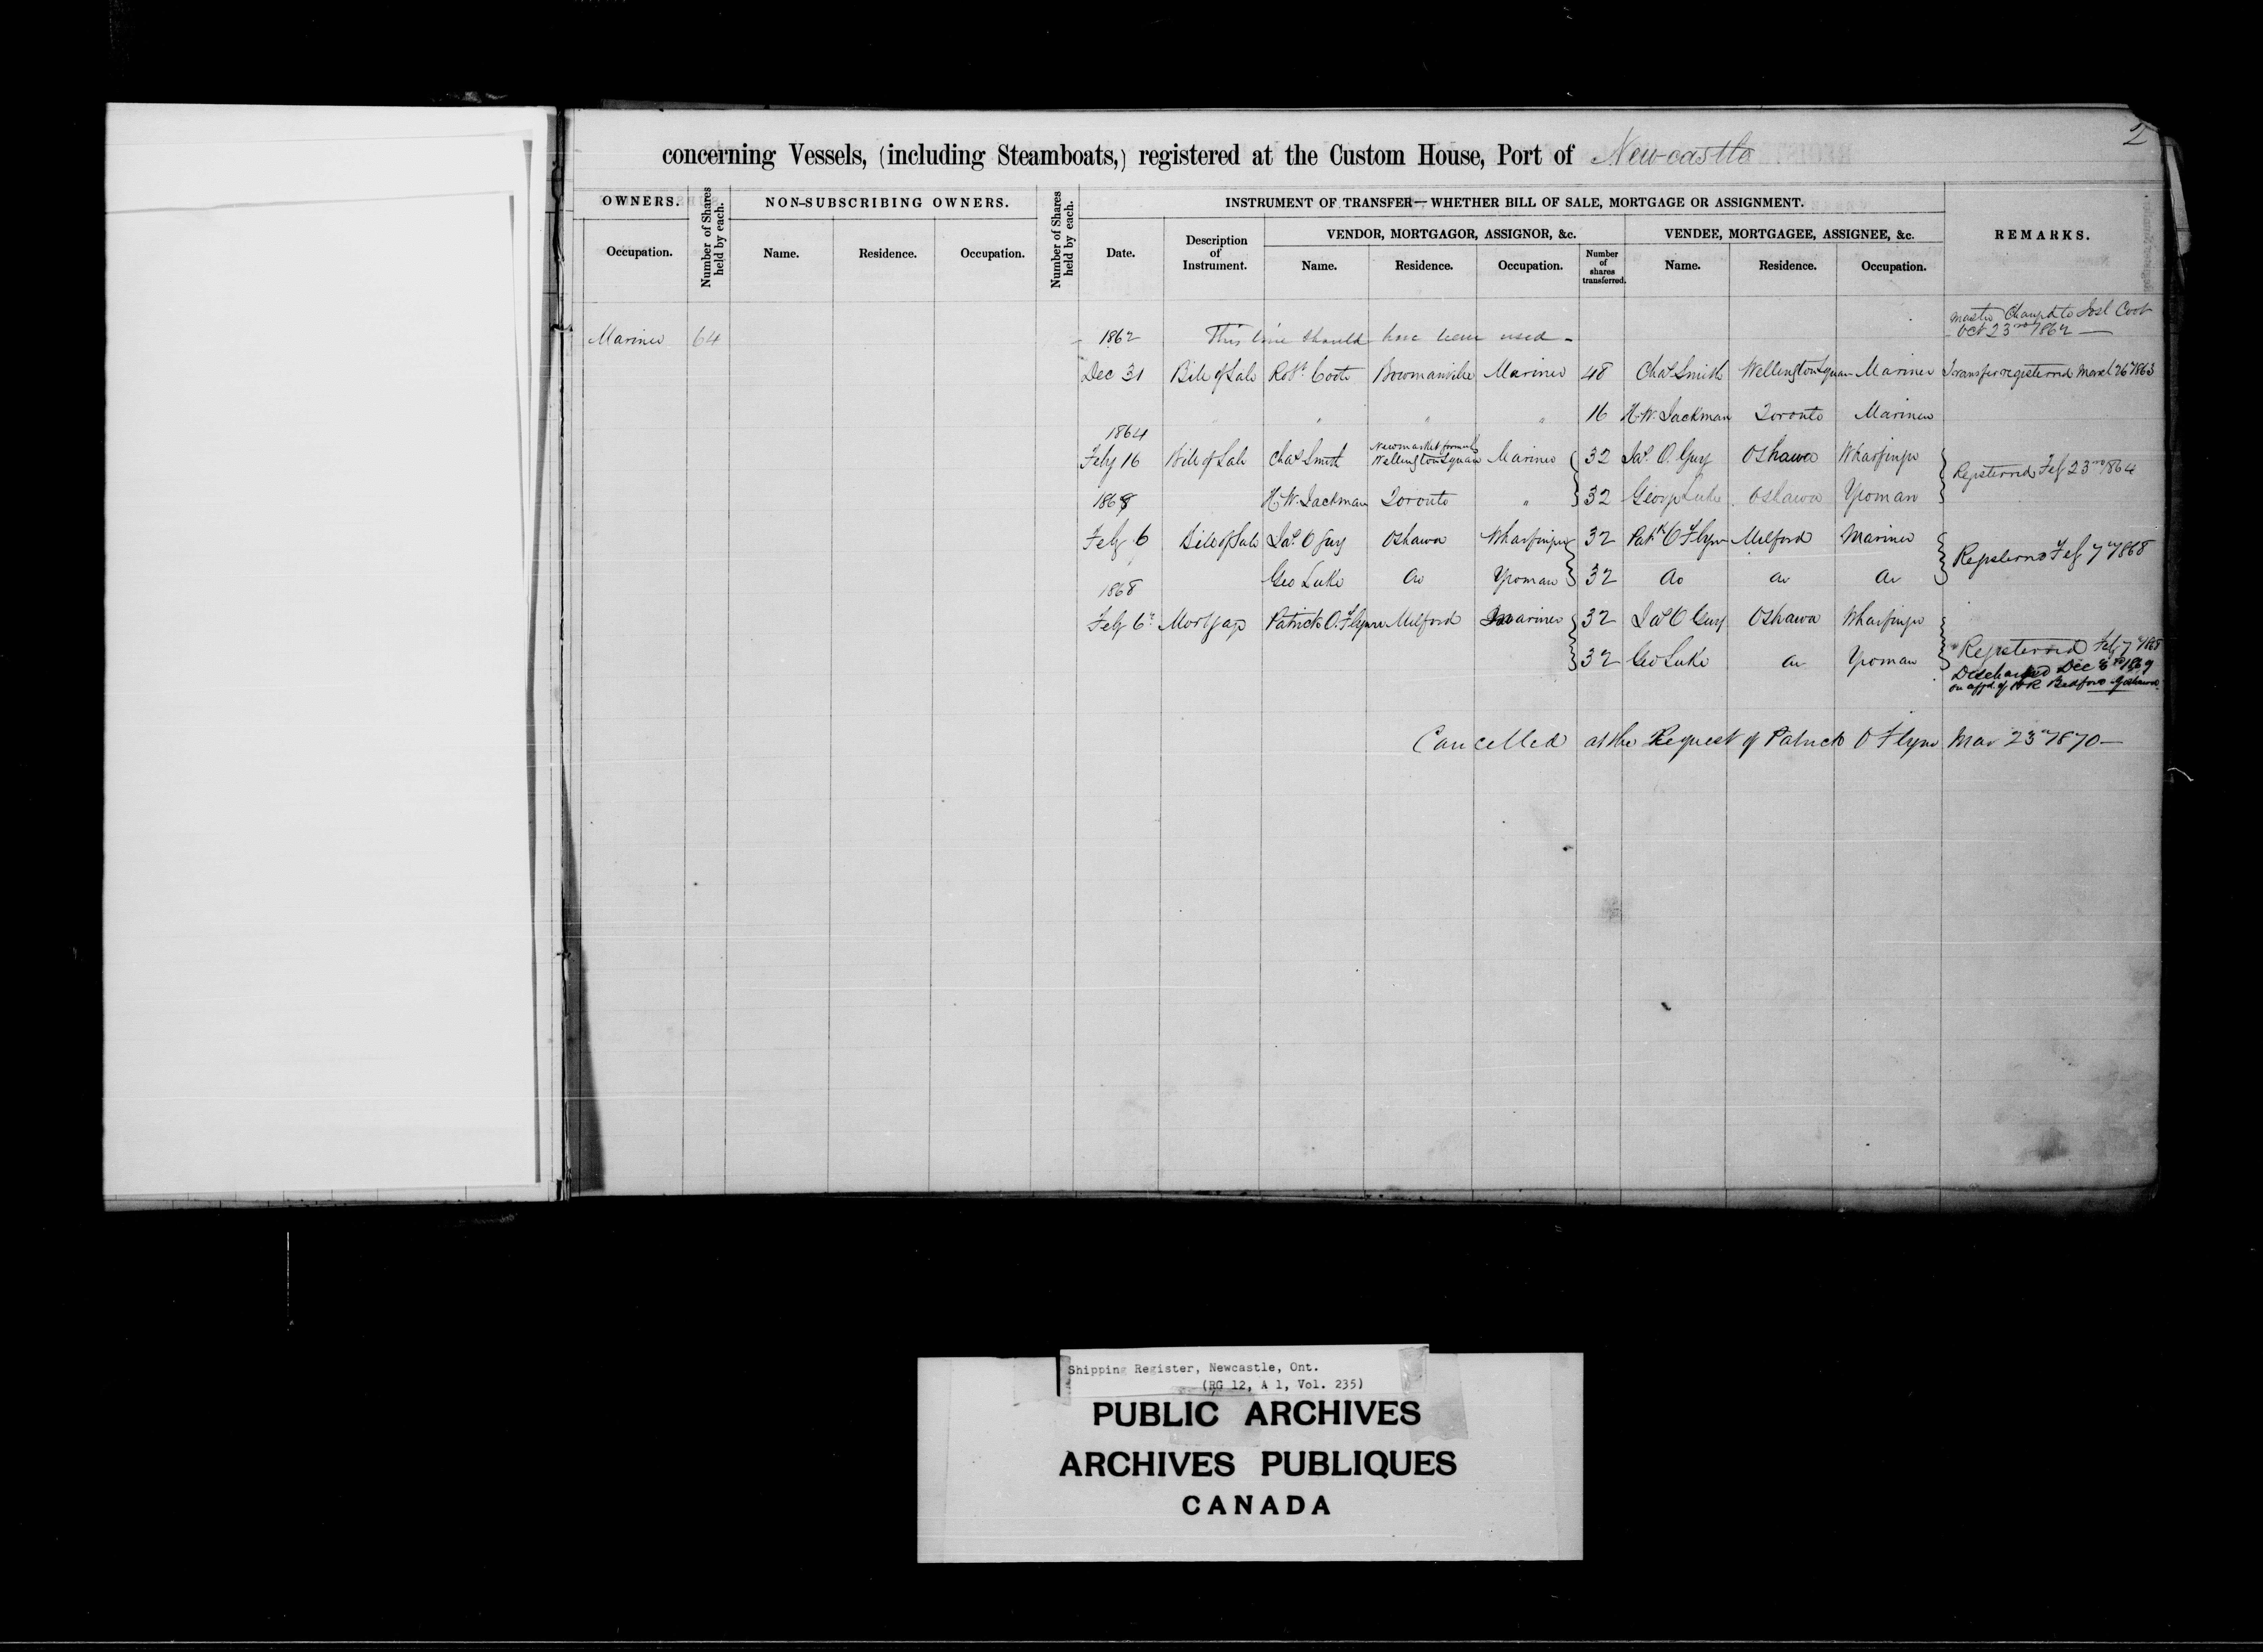 2
concerning Vessels, (including Steamboats,) registered at the Custom House, Port of Newcastle
OWNERS. Number of Shares held by each. NON-SUBSCRIBING OWNERS. Number of Shares held by each. INSTRUMENT OF TRANSFER—WHETHER BILL OF SALE, MORTGAGE OR ASSIGNMENT. REMARKS.
VENDOR, MORTGAGOR, ASSIGNOR, &c. VENDEE, MORTGAGEE, ASSIGNEE, &c.
Occupation. Name. Residence. Occupation. Date. Description of Instrument. Name. Residence. Occupation. Number of shares transferred. Name. Residence. Occupation.
Master Changed to Josh Coot
Oct 23rd 1862 —
Mariner 64 1862 This line should have been used -
Dec 31 Bill of Sale Robt. Coote Bowmanville Mariner 48 Chas Smith Wellington Square Mariner Transfer registerred March 26 1863
" " " 16 H.W. Jackman Toronto Mariner
1864
Newmarket formerly
Feby 16 Bill of Sale Chas Smith Wellington Square Mariner 32 Jas. O. Guy Oshawa Wharfinger
Registerred Feb 23rd 1864
1868 H.W. Jackman Toronto " 32 George Luke Oshawa Yeoman
Feby 6 Bill of Sale Jas. O Guy Oshawa Wharfinger 32 Patk O Flynn Milford Mariner
Registerred Feb 7th 1868
Geo Luke do Yeoman 32 do do do
1868
Feby 6th Mortgage Patrick O. Flynn Milford Mariner 32 Jas O Guy Oshawa Wharfinger
32 Geo Luke do Yeoman Registerred Feby 7th 1868
Discharged Dec 8th 1869
Cancelled at the Request of Patrick O Flynn Mar 23rd 1870 —
Shipping Register, Newcastle, Ont.
(RG 12, A 1, Vol. 235)
PUBLIC ARCHIVES
ARCHIVES PUBLIQUES
CANADA